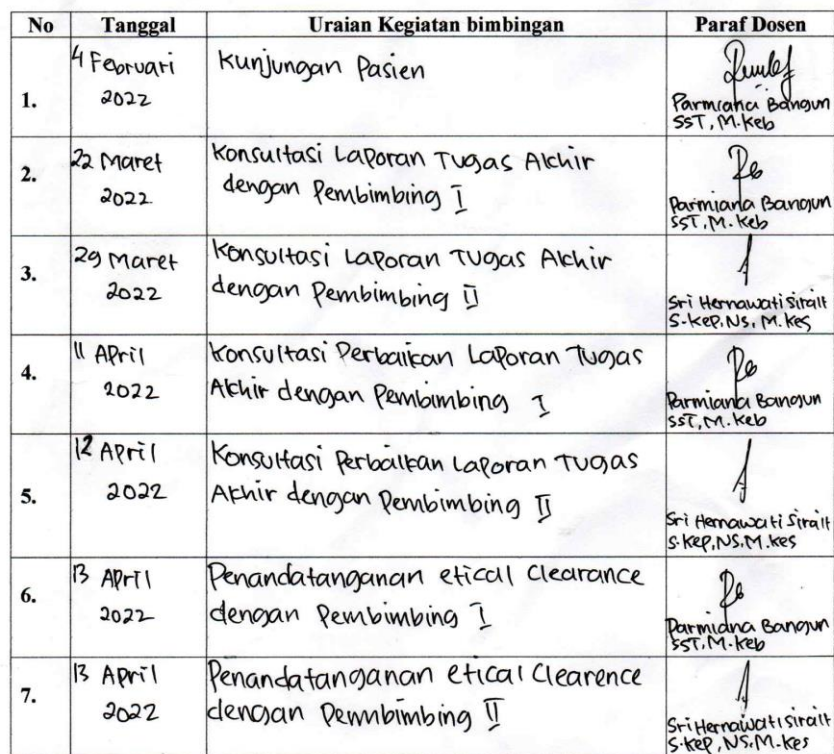 No Tanggal Uraian Kegiatan bimbingan Paraf Dosen
1. 4 Februari 2022 Kunjungan Pasien Parmiana Bangun SST, M.Keb
2. 22 Maret 2022 Konsultasi Laporan Tugas Akhir dengan Pembimbing I Parmiana Bangun SST, M.Keb
3. 29 Maret 2022 Konsultasi Laporan Tugas Akhir dengan Pembimbing II Sri Hernawati Sirait S.Kep, Ns, M.Kes
4. 11 April 2022 Konsultasi Perbaikan Laporan Tugas Akhir dengan Pembimbing I Parmiana Bangun SST, M.Keb
5. 12 April 2022 Konsultasi Perbaikan Laporan Tugas Akhir dengan Pembimbing II Sri Hernawati Sirait S.Kep, NS, M.Kes
6. 13 April 2022 Penandatanganan etical Clearance dengan Pembimbing I Parmiana Bangun SST, M.Keb
7. 13 April 2022 Penandatanganan etical Clearence dengan Pembimbing II Sri Hernawati Sirait S.Kep, NS, M.Kes